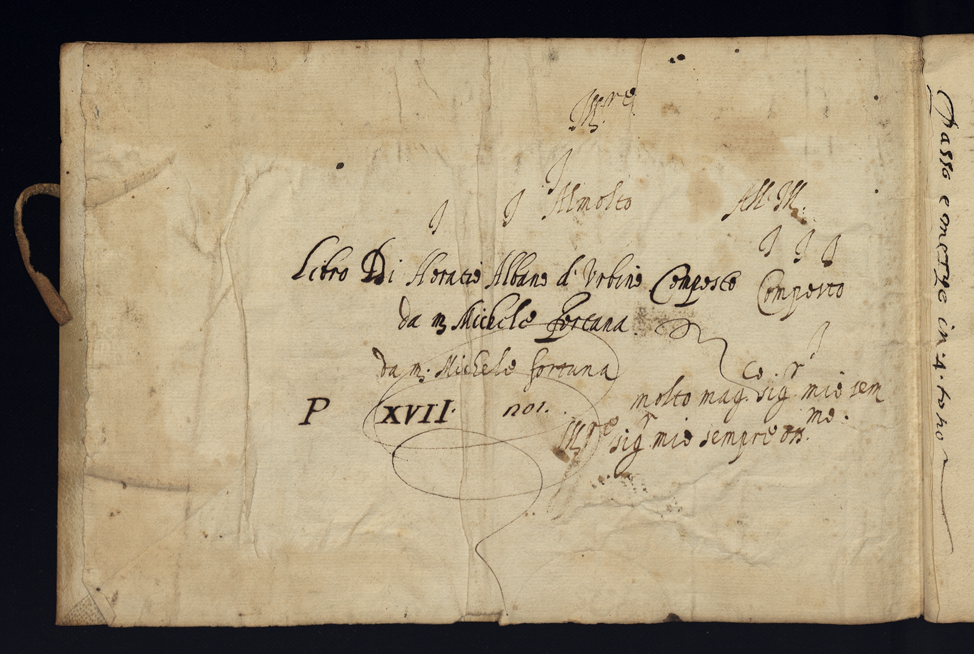 M.re
Al molto All. M.
Libro Di Horatio Albano d' Urbino Composto Composto
da m Michele Fortana
da m. Michele fortana
P XVII. nos.
molto mag.co sig.r mio sem
M.re sig.r mio sempre oss. mo.
Passo e mezzo in 4. tono